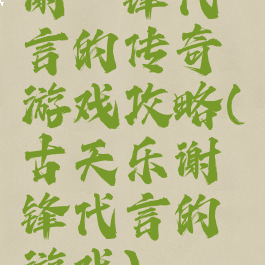 谢 锋代
言的传奇
游戏攻略(
古天乐谢
锋代言的
游戏)